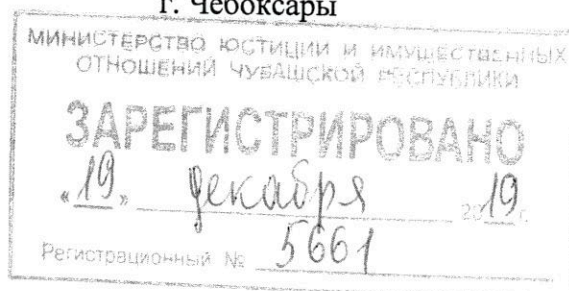 г. Чебоксары
МИНИСТЕРСТВО ЮСТИЦИИ И ИМУЩЕСТВЕННЫХ
ОТНОШЕНИЙ ЧУВАШСКОЙ РЕСПУБЛИКИ
ЗАРЕГИСТРИРОВАНО
«19» декабря 2019 г.
Регистрационный № 5661